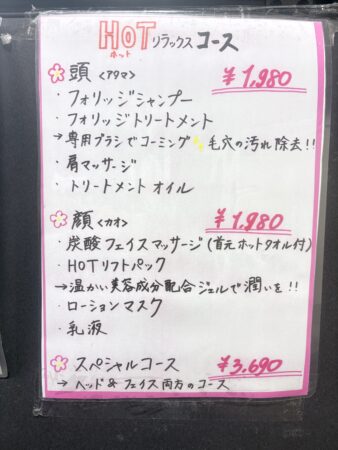 HOTリラックスコース
ホット
頭<アタマ> ¥1,980
・フォリッジシャンプー
・フォリッジトリートメント
→専用ブラシでコーミング✨毛穴の汚れ除去!!
・肩マッサージ
・トリートメントオイル
顔<カオ> ¥1,980
・炭酸フェイスマッサージ(首元ホットタオル付)
・HOTリフトパック
→温かい美容成分配合ジェルで潤いを!!
・ローションマスク
・乳液
スペシャルコース ¥3,690
→ヘッド&フェイス両方のコース